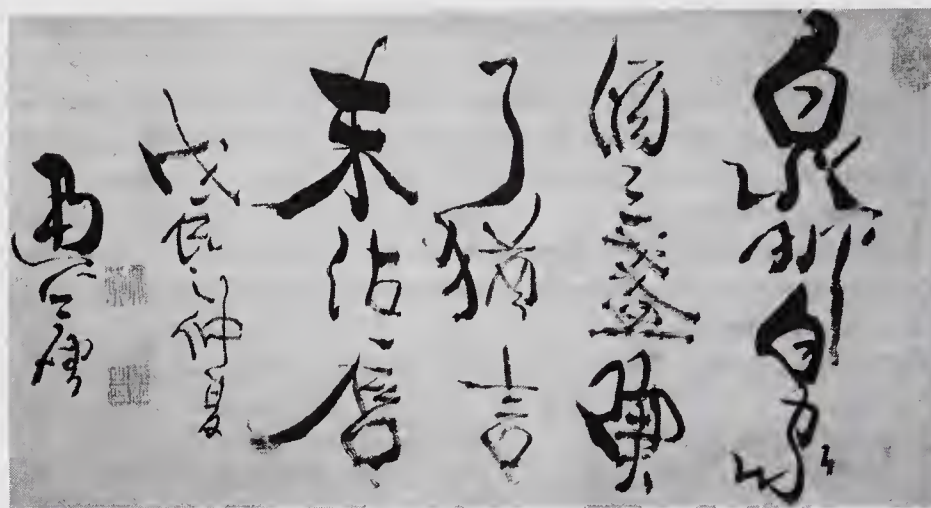 泉州白家
酒三盞喫
了猶言
未沾唇
戊辰之仲夏